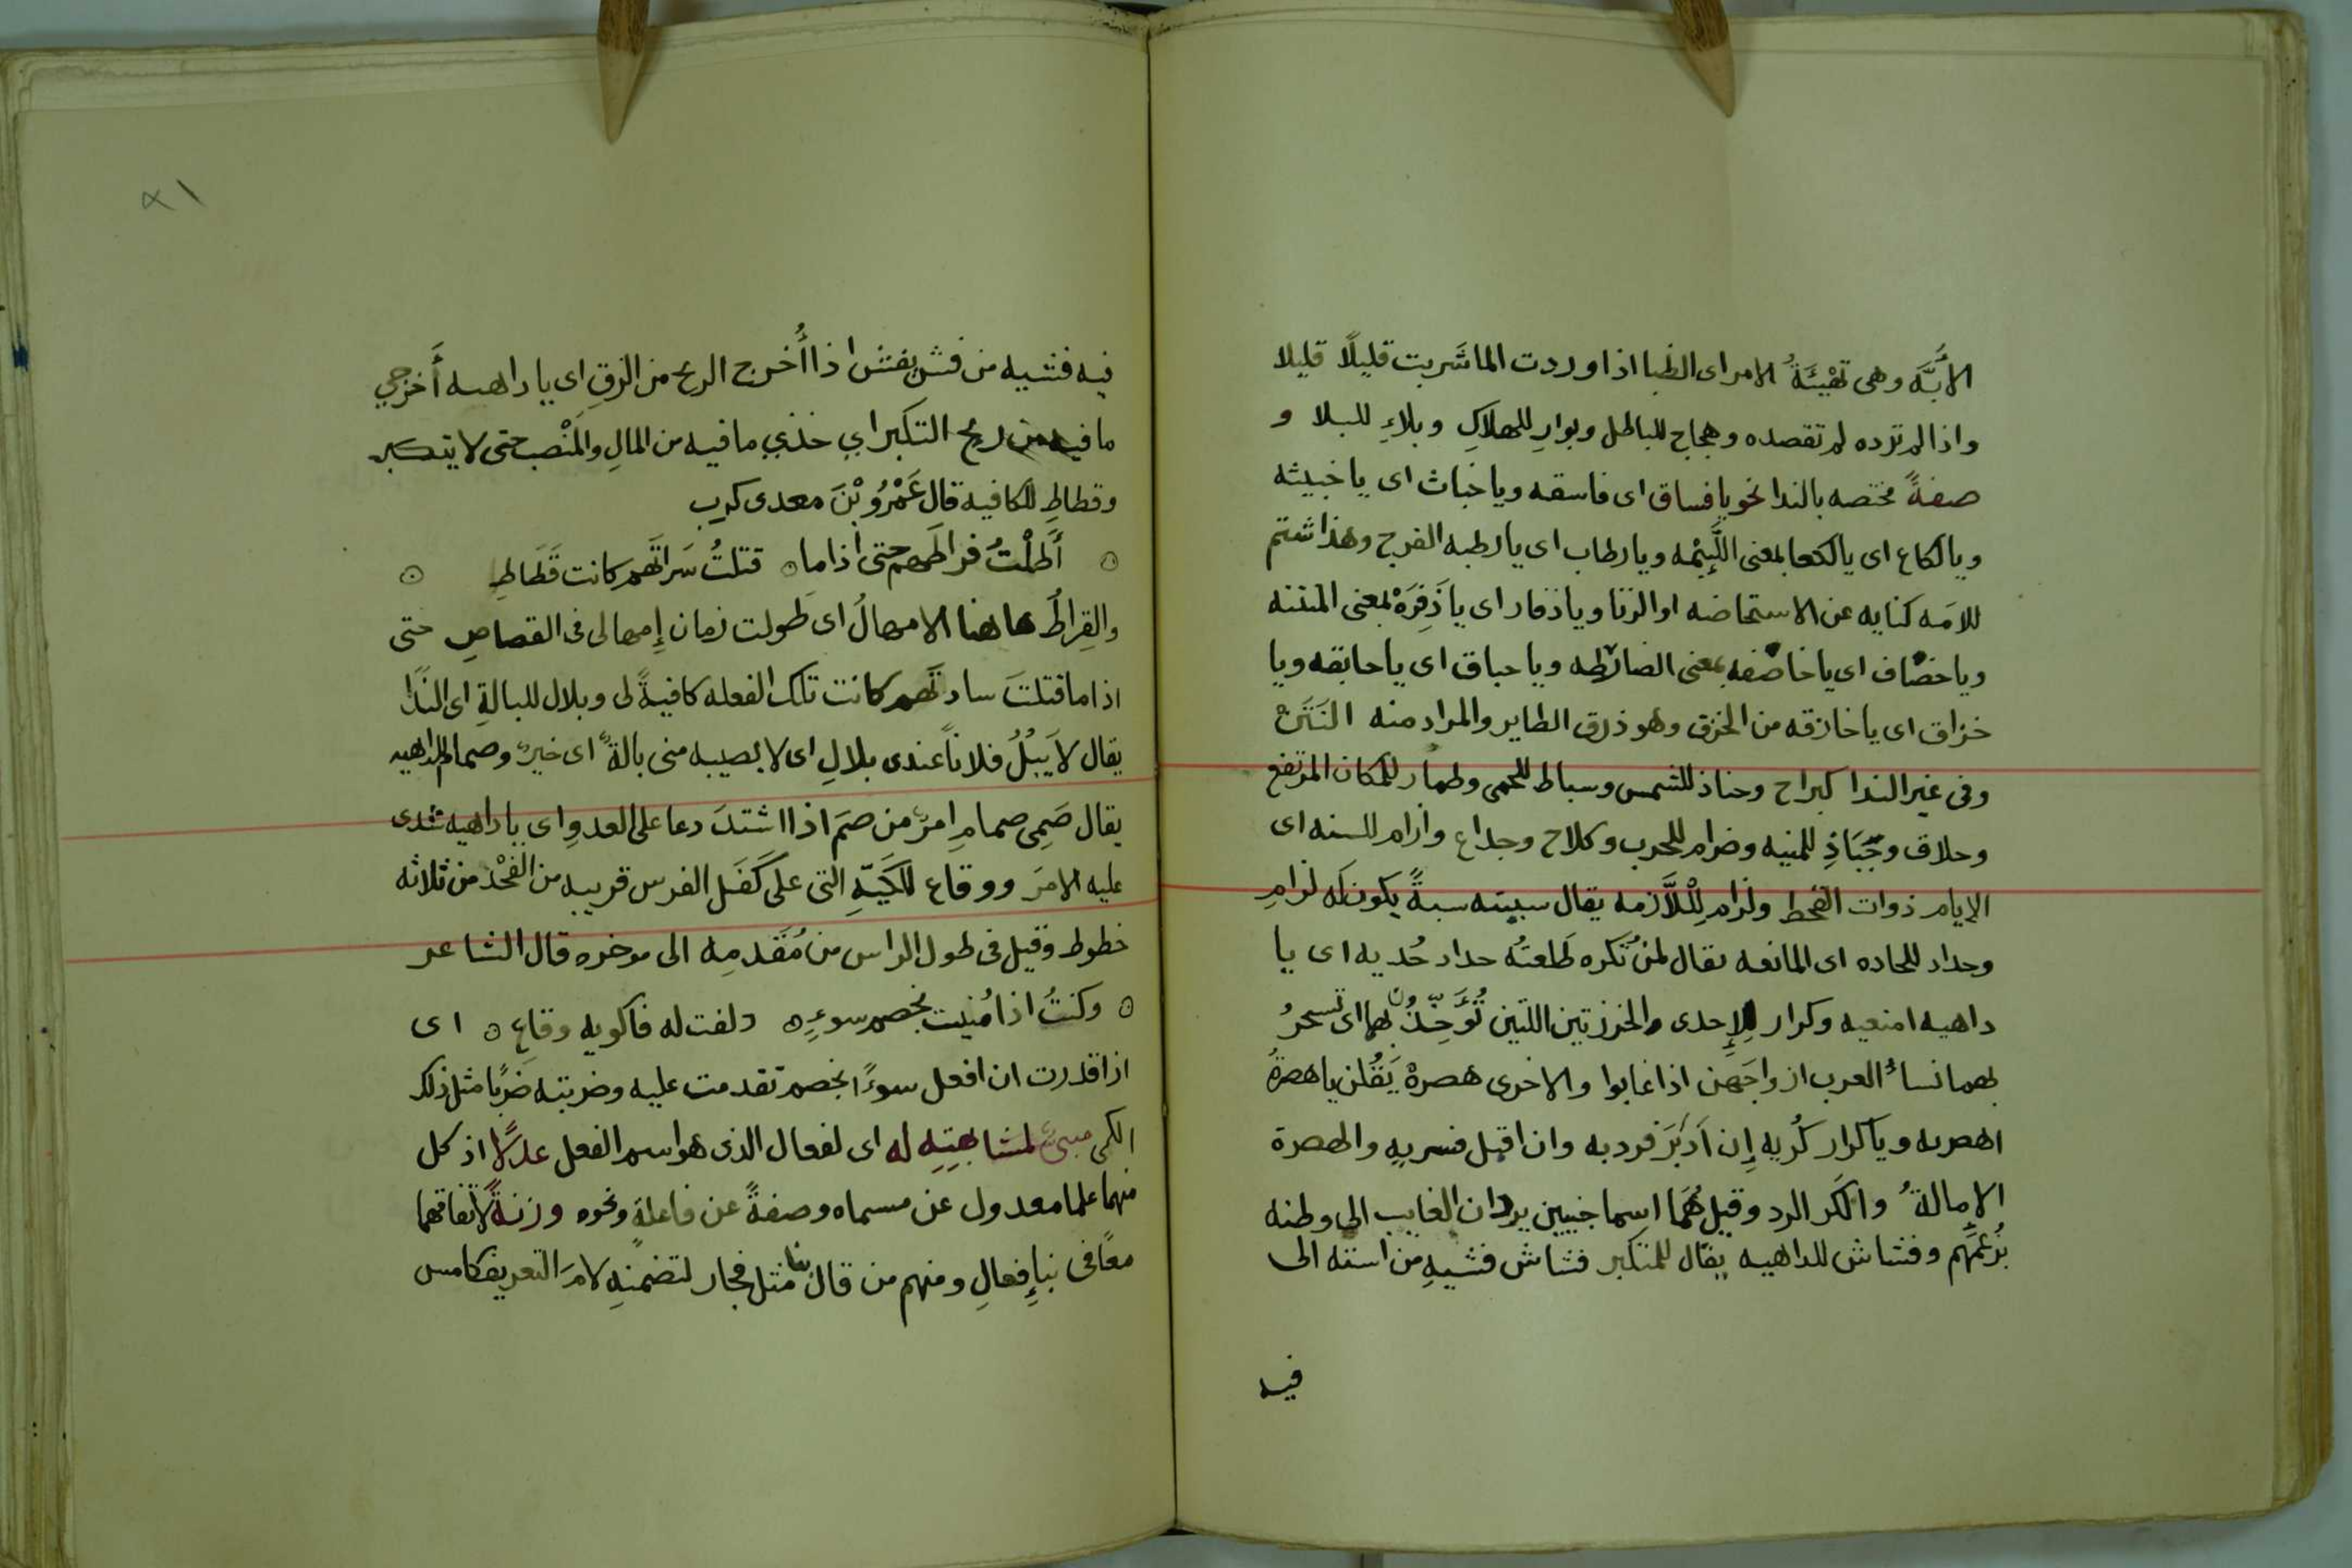 الابَّه وهى تهْيئَةُ الامر اى الظبا اذا وردت الما شَربت قليلًا قليلا
واذا لم ترده لم تقصده وهجاج للباطل وبوارِ للهلاكِ وبلاءِ للبلا و
صفةً مختصه بالندا نحو يا فساق اى فاسقه ويا خباث اى يا خبيثه
ويا لكاع اى يا لكعا بمعنى اللَّئِيمْه ويا رطاب اى يا رطبه الفرج وهذا شتم
للامَه كنايه عن الاستحاضه او الزنا ويا ذفار اى يا ذَفِرَهْ بمعنى المنتنه
ويا خضاف اى يا خاضفه بمعنى الضارطه ويا حباق اى يا حابقه ويا
خزاق اى يا خازقه من الخزق وهو ذرق الطاير والمراد منه النَتَنْ
وفى غير الندا كبراح وحناذ للشمس وسباط للحمى وطمار للمكان المرتفع
وحلاق وجَبَاذِ للمنيه وضرام للحرب وكلاح وجداع وأزام للسنه اى
الايام ذوات القحط ولزامِ لِلْلَّازمه يقال سببته سبةً يكون له لزامِ
وحداد للحاده اى المانعه يقال لمن تُكره طَلعتُه حداد حُديه اى يا
داهيه امنعيه وكرار لِلإحدى والخرزتين اللتين تُؤَخِّذُ بهما اى تسحرُ
بهما نساءُ العرب ازواجَهنْ اذا غابوا والاخرى هصرهْ يَقُلن يا هصرةُ
اهصريه ويا كرار كُريه إِن اَدبَرَ فرديه وان اقبل فسريهِ والهصرة
الاِمالةُ والكَر الرد وقيل هُمَا اسما جنيين يردان الغايب الى وطنه
بزُعمهِم وفشاش للداهيه يقال للمتكبر فشاش فشيهِ من استه الى
فيه
٨١
فيه فشيه من فشَ يفش اذا أُخرج الريح من الزقِ اى يا داهيه أَخرجي
ما فيه من ريح التكبر اي خذي ما فيه من المالِ والمَنْصب حتى لا يتكبر
وقطاطِ للكافيه قال عَمْرُو بْنَ معدى كرب
أَطلْتُ فراطَهم حتى اذا ما قتلتُ سَراتَهم كانت قَطَاطِ
والفِراطُ هاهنا الامهالُ اى طَولت زمان إِمهالى فى القصاصِ حتى
اذا ما قتلتَ سادتَهم كانت تلك الفعله كافيةً لى وبلال للبالةِ اى الندَا
يقال لا يَبُلُ فلاناً عندى بلالِ اى لا يصيبه منى بالةٌ اى خيرٌ وصمام للداهيه
يقال صَمِى صمامِ امرٌ من صمَ اذا اشتدَ دعا على العدوِ اى يا داهيه شدى
عليه الامرَ ووقاع للكَيَّةِ التى على كَفَل الفرس قريبه من الفَخْذ من ثلاثه
خطوط وقيل فى طول الراس من مُقَدمِه الى موخره قال الشاعر
وكنتُ اذا مُنيت بخصم سوءٍ دلفت له فاكويه وقاعِ اى
اذا قدرت ان افعل سوءًا بخصم تقدمت عليه وضربته ضربًا مثل ذلك
الكى مبنىٌ لمشابهتِهِ له اى لفعال الذى هو اسم الفعل عدلًا اذ كل
منهما علما معدول عن مسماه وصفةً عن فاعلةٍ ونحوه وزنةً لاتفاقهما
معًا فى بناءِ فعالِ ومنهم من قال بنا مثل فجار لتضمنهِ لامَ التعريف كامس